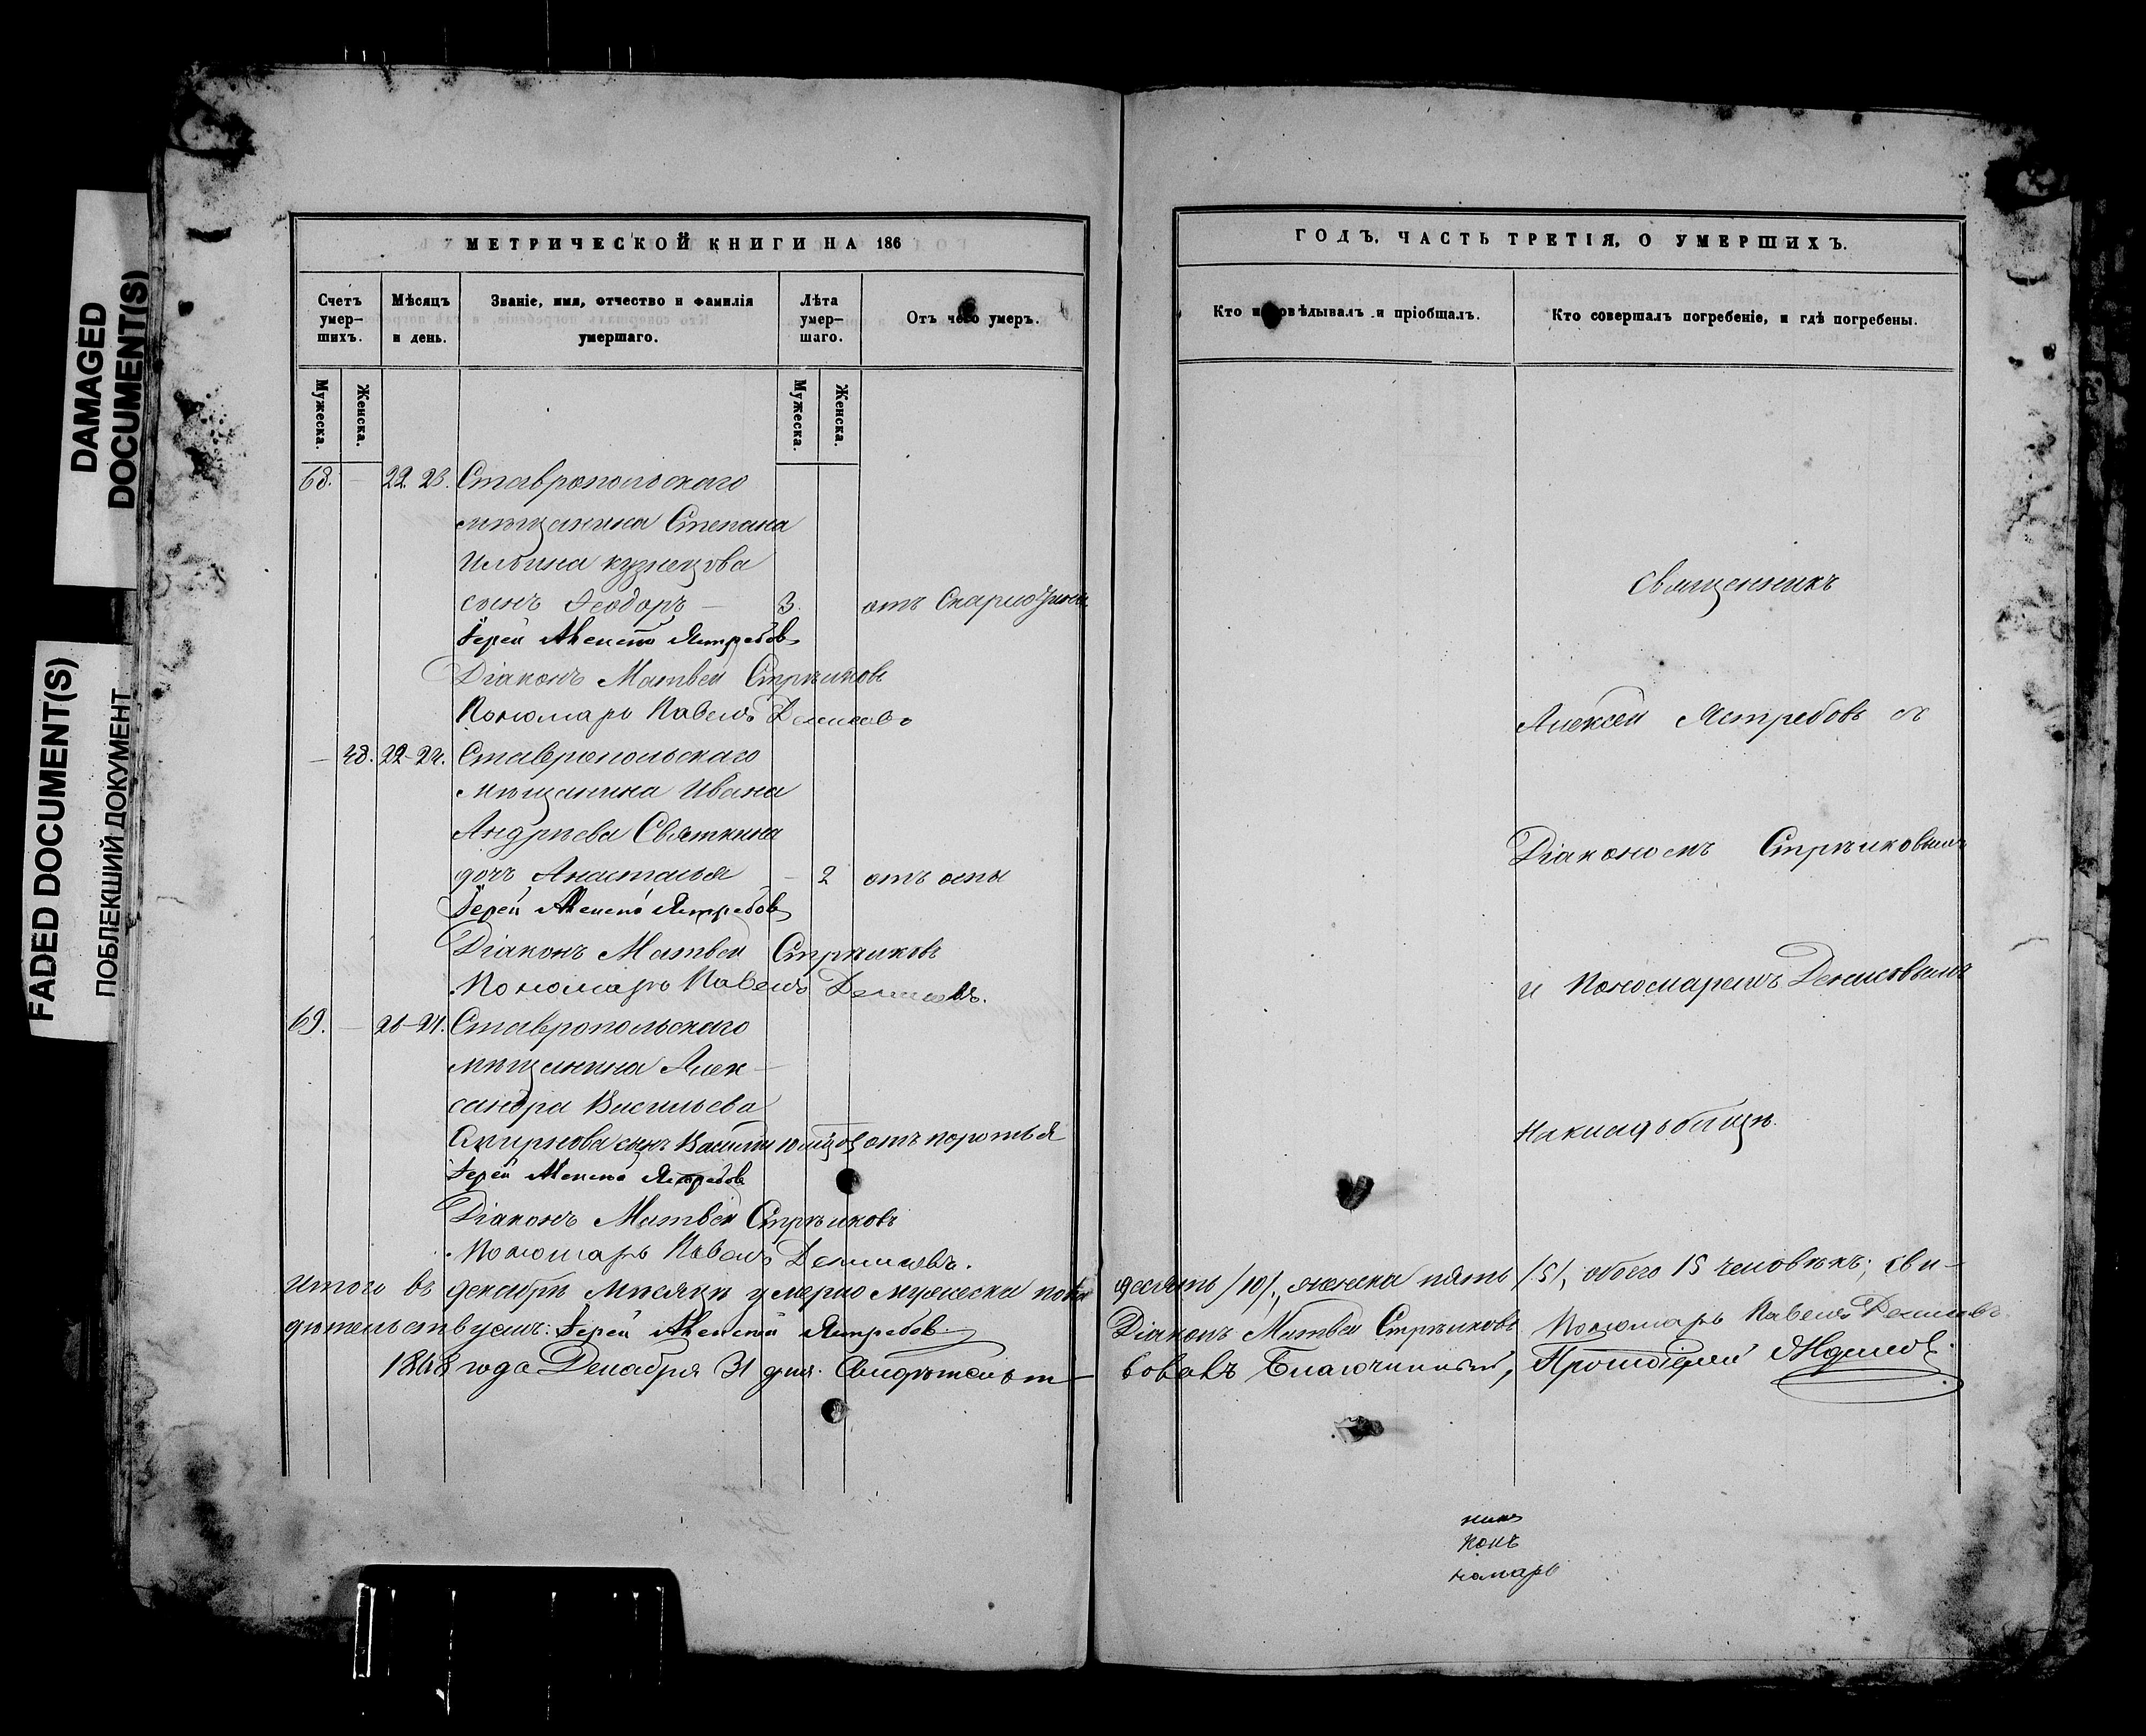 DAMAGED
DOCUMENT(S)
FADED DOCUMENT(S)
ПОБЛЕКШИЙ ДОКУМЕНТ
МЕТРИЧЕСКОЙ КНИГИ НА 186
Счетъ умер-
шихъ.
Мѣсяцъ
и день.
Званіе, имя, отчество и фамилія
умершаго.
Лѣта
умер-
шаго.
Отъ чего умеръ.
Мужеска.
Женска.
Мужеска.
Женска.
68. — 22. 23. Ставропольскаго
мѣщанина Степана
Ильина Кузнецова
сынъ Феодоръ — 3. отъ
Іерей Алексѣй Ястребовъ
Діаконъ Матвей Стрѣлковъ
Пономарь Павелъ Денисовъ
— 48. 22-24. Ставропольскаго
мѣщанина Ивана
Андрѣева Святкина
дочь Анастасья — 2 отъ оспы
Іерей Алексѣй Ястребовъ
Діаконъ Матвей Стрѣлковъ
Пономарь Павелъ Денисовъ.
69. — Ставропольскаго
мѣщанина Алек-
сандра Васильева
сынъ Василій 10 отъ
Іерей Алексѣй Ястребовъ
Діаконъ Матвей Стрѣлковъ
Пономарь Павелъ Денисовъ.
Итого въ декабрѣ мѣсяцѣ умерло мужеска пола
дѣтельствуемъ: Іерей Алексѣй Ястребовъ.
1868 года Декабря 31 дня. Свидѣтельст-
ГОДЪ, ЧАСТЬ ТРЕТІЯ, О УМЕРШИХЪ.
Кто исповѣдывалъ и пріобщалъ.
Кто совершалъ погребеніе, и гдѣ погребены.
Священникъ
Алексѣй Ястребовъ съ
Діакономъ Стрѣлковымъ
и Пономаремъ Денисовымъ
На кладбищѣ.
десять /10/, женска пять /5/, обоего 15 человѣкъ; сви-
Діаконъ Матвей Стрѣлковъ Пономарь Павелъ Денисовъ
вовалъ Благочинный, Протоіерей
никъ
конъ
номарь